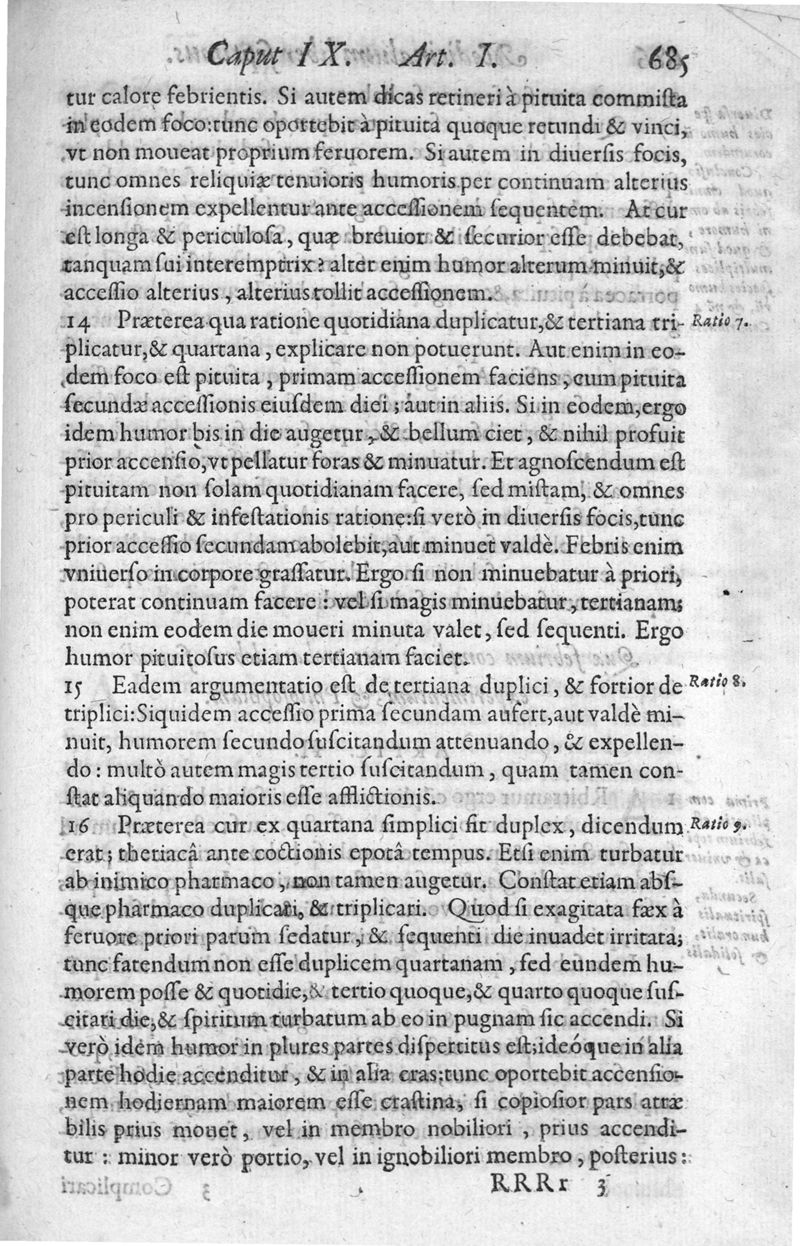 Caput IX. Art. I. 685
tur calore febrientis. Si autem dicas retineri à pituita commiſta
in eodem foco: tunc oportebit à pituita quoque retundi & vinci,
vt non moueat proprium feruorem. Si autem in diuerſis focis,
tunc omnes reliquiæ tenuioris humoris per continuam alterius
incenſionem expellentur ante acceſſionem ſequentem. At cur
eſt longa & periculoſa, quæ breuior & ſecurior eſſe debebat,
tanquam ſui interemptrix? alter enim humor alterum minuit, &
acceſſio alterius, alterius tollit acceſſionem.
14 Præterea qua ratione quotidiana duplicatur, & tertiana tri- Ratio 7.
plicatur, & quartana, explicare non potuerunt. Aut enim in eo-
dem foco eſt pituita, primam acceſſionem faciens, cum pituita
ſecundæ acceſſionis eiuſdem diei; aut in aliis. Si in eodem, ergo
idem humor bis in die augetur, & bellum ciet, & nihil profuit
prior accenſio, vt pellatur foras & minuatur. Et agnoſcendum eſt
pituitam non ſolam quotidianam facere, ſed miſtam, & omnes
pro periculi & infeſtationis ratione: ſi verò in diuerſis focis, tunc
prior acceſſio ſecundam abolebit, aut minuet valdè. Febris enim
vniuerſo in corpore graſſatur. Ergo ſi non minuebatur à priori,
poterat continuam facere: vel ſi magis minuebatur, tertianam;
non enim eodem die moueri minuta valet, ſed ſequenti. Ergo
humor pituitoſus etiam tertianam faciet.
15 Eadem argumentatio eſt de tertiana duplici, & fortior de Ratio 8.
triplici: Siquidem acceſſio prima ſecundam aufert, aut valdè mi-
nuit, humorem ſecundo ſuſcitandum attenuando, & expellen-
do: multò autem magis tertio ſuſcitandum, quam tamen con-
ſtat aliquando maioris eſſe afflictionis.
16 Præterea cur ex quartana ſimplici fit duplex, dicendum Ratio 9.
erat; theriacâ ante coctionis epotâ tempus. Etſi enim turbatur
ab inimico pharmaco, non tamen augetur. Conſtat etiam abſ-
que pharmaco duplicari, & triplicari. Quòd ſi exagitata fæx à
feruore priori parum ſedatur, & ſequenti die inuadet irritata;
tunc fatendum non eſſe duplicem quartanam, ſed eundem hu-
morem poſſe & quotidie, & tertio quoque, & quarto quoque ſuſ-
citari die, & ſpiritum turbatum ab eo in pugnam ſic accendi. Si
verò idem humor in plures partes diſpertitus eſt; ideóque in alia
parte hodie accenditur, & in alia cras: tunc oportebit accenſio-
nem hodiernam maiorem eſſe craſtina, ſi copioſior pars atræ
bilis prius mouet, vel in membro nobiliori, prius accendi-
tur: minor verò portio, vel in ignobiliori membro, poſterius:
RRRr 3